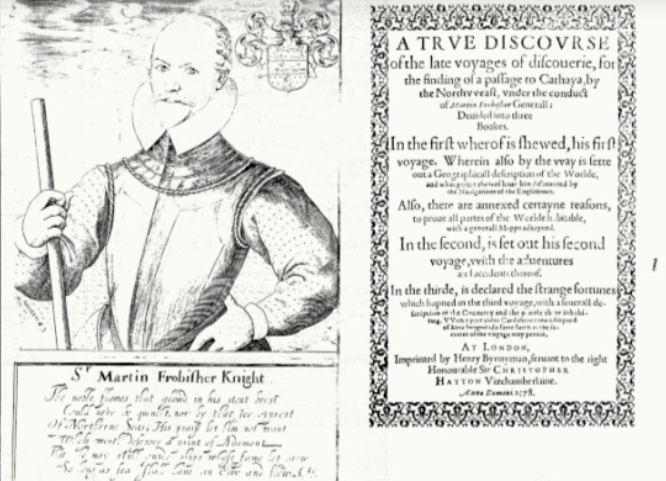 Sr Martin Frobisher Knight
The noble flames that glowd in his stout brest
Could neve be quencht, nor by that Ice opprest
Of Northerne Seas: His praise let him not want
A TRVE DISCOVRSE
of the late voyages of discouerie, for
the finding of a passage to Cathaya, by
the Northvveast, vnder the conduct
of Martin Frobisher Generall:
Deuided into three
Bookes.
In the first wherof is shewed, his first
voyage. Wherein also by the vvay is sette
out a Geographicall description of the Worlde,
and what partes thereof haue bin discouered by
the Nauigations of the Englishmen.
Also, there are annexed certayne reasons,
to proue all partes of the Worlde habitable,
with a generall Mappe adioyned.
In the second, is set out his second
voyage, vvith the aduentures
and accidents thereof.
In the thirde, is declared the strange fortunes
which hapned in the third voyage, with a seuerall de-
scription of the Countrey and the people there inhabi-
ting.
of the voyage may
AT LONDON,
Imprinted by Henry Bynnyman, seruant to the right
Honourable Sir CHRISTOPHER
HATTON Vizchamberlaine.
Anno Domini. 1578.